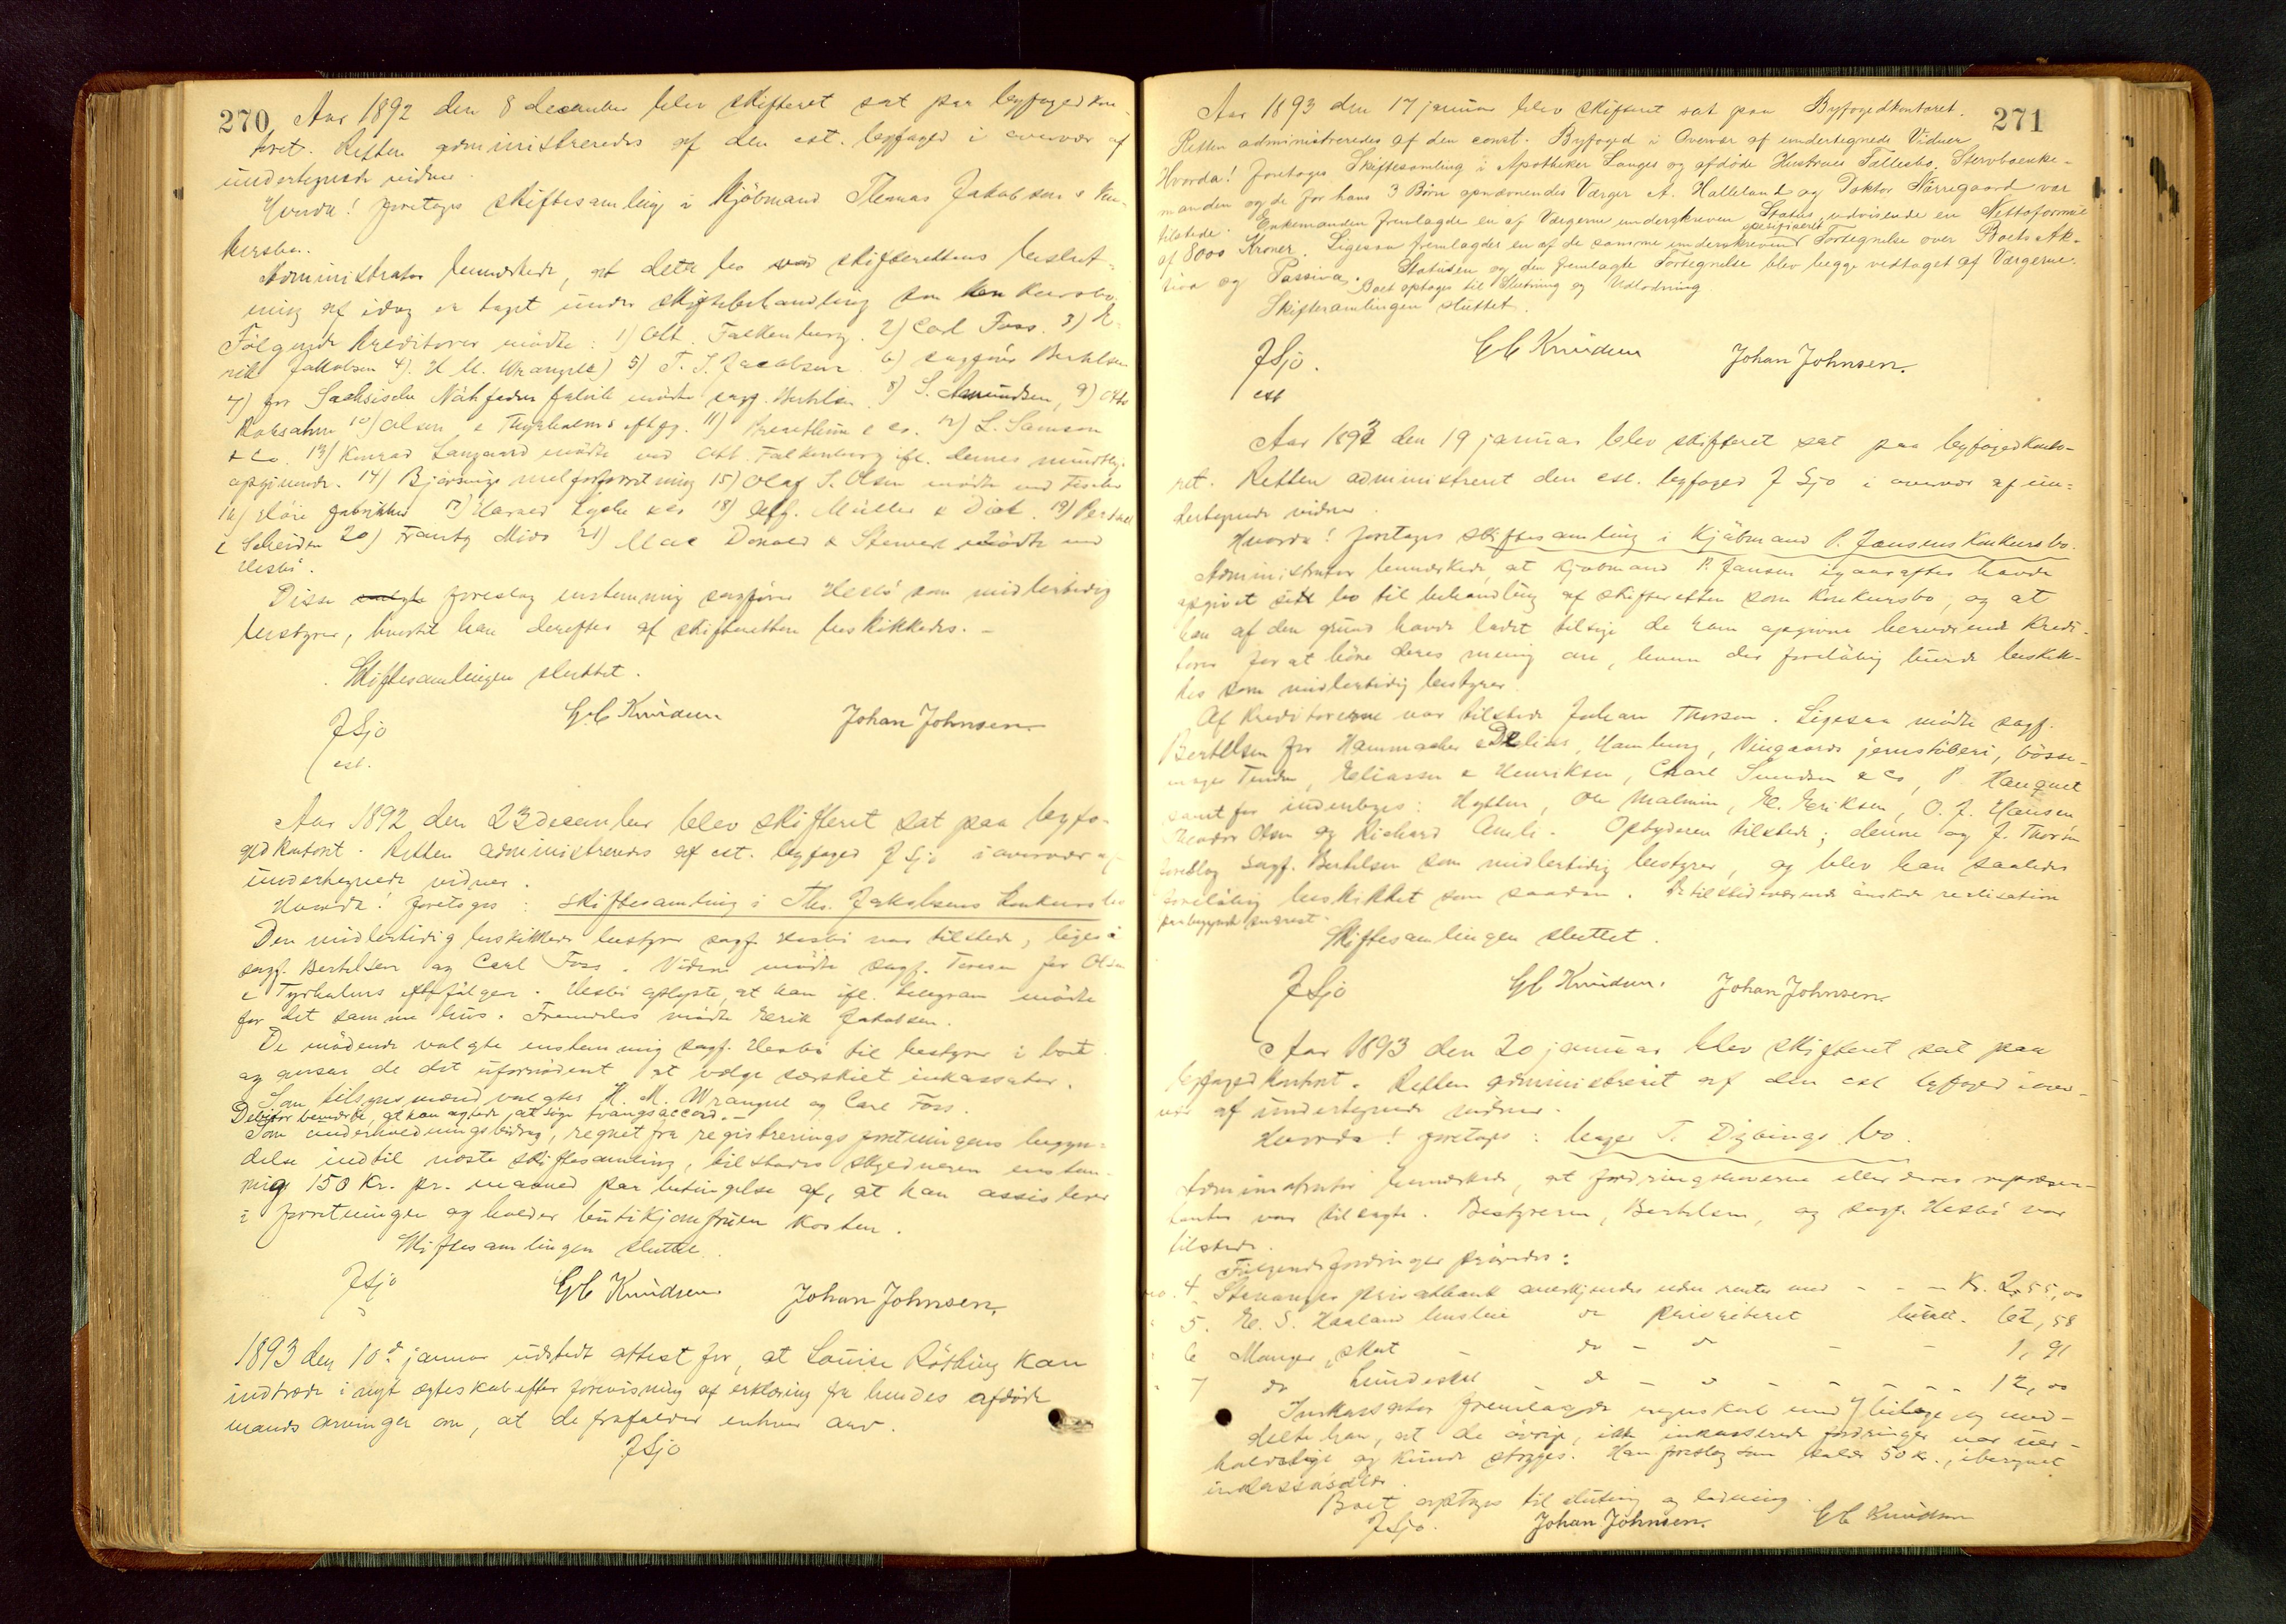 270
Aar 1892 den 8 december blev skifteret sat paa byfogedkon-
toret. Retten administreredes af den cst. byfoged i overvær af
undertegnede vidner.
Hvorda! foretages skiftesamling i Kjöbmand Thomas Jakobsens kon-
kursbo.
Administrator bemærkede, at dette bo ved skifterettens beslut-
ning af idag er taget under skiftebehandling som konkursbo.
Følgende kreditorer mödte: 1) Alb. Falkenburg. 2) Carl Foss. 3) E-
rik Jakobsen 4) H. M. Wrangell 5) T. S. Jacobsen 6) sagfører Bertelsen
7) for Sachsische Nähfaden fabrik mödte sagf. Bertelsen 8) S. Amundsen, 9) Otto
Roksahn 10) Olsen & Thyrholms eftfgr. 11) & co. 12) L. Samson
& Co. 13) Konrad Langaard mödte ved Alb. Falkenburg ifl. dennes mundtlige
opgivende. 14) Bjørsvigs melforretning 15) Olaf S. Olsen mödte ved
16) fabrikker 17) Harald Lycke & co 18) Aug. Müller & 19)
& 20) Frantz 21) Mac Donald & Steward mödte ved
Hesbö.
Disse foreslog enstemmig sagförer Hesbö som midlertidig
bestyrer, hvortil han derefter af skifteretten beskikkedes. -
Skiftesamlingen sluttet.
J Sjo
cst.
G C Knudsen
Johan Johnsen
Aar 1892 den 23 december blev skifteret sat paa byfo-
gedkontoret. Retten administreredes af cst. byfoged J Sjo i overvær af
undertegnede vidner.
Hvorda! foretages: skiftesamling i Ths. Jakobsens konkursbo
Den midlertidig beskikkede bestyrer sagf. Hesbö var tilstede, ligesaa
sagf. Bertelsen og Carl Foss. Videre mödte sagf. for Olsen
& Tyrholms eftfölger. Hesbö oplyste, at han ifl. telegram mödte
for det samme hus. Fremdeles mödte Erik Jakobsen.
De mödende valgte enstemmig sagf. Hesbö til bestyrer i boet
og anser de det ufornødent at vælge særskilt inkassator.
Som tilsynsmænd valgtes H. M. Wrangell og Carl Foss.
Debitor bemærkede, at han agtede at söge tvangsaccord. -
Som underholdningsbidrag, regnet fra registreringsforretningens begyn-
delse indtil næste skiftesamling, tilstodes skyldneren enstem-
mig 150 Kr. pr. maaned paa betingelse af, at han assisterer
i forretningen og holder butikjomfruen kosten.
Skiftesamlingen sluttet.
J Sjo
G C Knudsen
Johan Johnsen.
1893 den 10de januar udstedt attest for, at Louise Röthing kan
indtræde i nyt ægteskab efter forevisning af erklæring fra hendes afdöde
mands arvinger om, at de frafalder enhver arv.
J Sjo
271
Aar 1893 den 17 januar blev skifteret sat paa Byfogedkontoret.
Retten administreredes af den const. Byfoged i Overvær af undertegnede Vidner
Hvorda! foretages Skiftesamling i Apotheker Langes og afdöde Hustrues Fællesbo. Stervboenke-
manden og de for hans 3 Börn opnævnendes Værger A. Halleland og Doktor Nörregaard var
tilstede. Enkemanden fremlagde en af Værgerne underskreven Status, udvisende en Nettoformue
af 8000 Kroner. Ligesaa fremlagdes en af de samme underskreven spesifiseret Fortegnelse over Boets Ak-
tiva og Passiva. Statusen og den fremlagte Fortegnelse blev begge vedtaget af Værgerne.
Boet optages til Slutning og Udlodning.
Skiftesamlingen sluttet.
J Sjo.
cst
G C Knudsen
Johan Johnsen.
Aar 1893 den 19 januar blev skifteret sat paa byfogedkonto-
ret. Retten administreret den cst. byfoged J Sjo i overvær af un-
dertegnede vidner.
Hvorda! foretages skiftesamling i Kjöbmand P. Jansens Konkursbo.
Administrator bemærkede, at Kjöbmand P. Jansen igaaraftes havde
opgivet sit bo til behandling af skifteretten som konkursbo, og at
han af den grund havde ladet tilsige de ham opgivne herværende kredi-
torer for at höre deres mening om, hvem der foreløbig burde beskik-
kes som midlertidig bestyrer.
Af kreditorerne var tilstede Johan Thorsen. Ligesaa mödte sagf.
Bertelsen for Hammacher & Delius, Hamburg, Vingaards jernstöberi, bösse-
mager Tendu, Eliassen & Henriksen, Charl Svendsen & co, P. Hauquet
samt for indenbyes: Hytten, Ole Malmin, E. Eriksen, O. J. Hansen
Theodor Olsen og Richard Amli. Opbyderen tilstede; denne og J. Thorsen
foreslog sagf. Bertelsen som midlertidig bestyrer, og blev han saaledes
foreløbig beskikket som saadan. De tilstedeværende ønskede realisation
paabegyndt snarest.
Skiftesamlingen sluttet.
J Sjo
G C Knudsen.
Johan Johnsen
Aar 1893 den 20 januar blev skifteret sat paa
byfogedkontoret. Retten administreret af den cst byfoged i over-
vær af undertegnede vidner.
Hvorda! foretages: T. Dybings bo.
Administrator bemærkede, at fordringshaverne eller deres repræsen-
tanter var tilsagte. Bestyreren, Bertelsen, og sagf. Hesbö var
tilstede.
Følgende fordringer prövedes:
no. 4 Stavanger privatbank anerkjendes uden renter med - - - Kr. 255,00
5. E. S. Haaland husleie do prioriteret 62,58
6 skat - do - do - - 1,91
7 do hundeskat do - do - - - - 12,00
Inkassator fremlagde regnskab med 7 bilage og med-
delte han, at de övrige, ikke inkasserede fordringer var uer-
holdelige og kunde stryges. Han foreslog som salær 50 kr., iberegnet
inkassosalær.
Boet optages til slutning og lodning.
J Sjo.
Johan Johnsen.
G C Knudsen